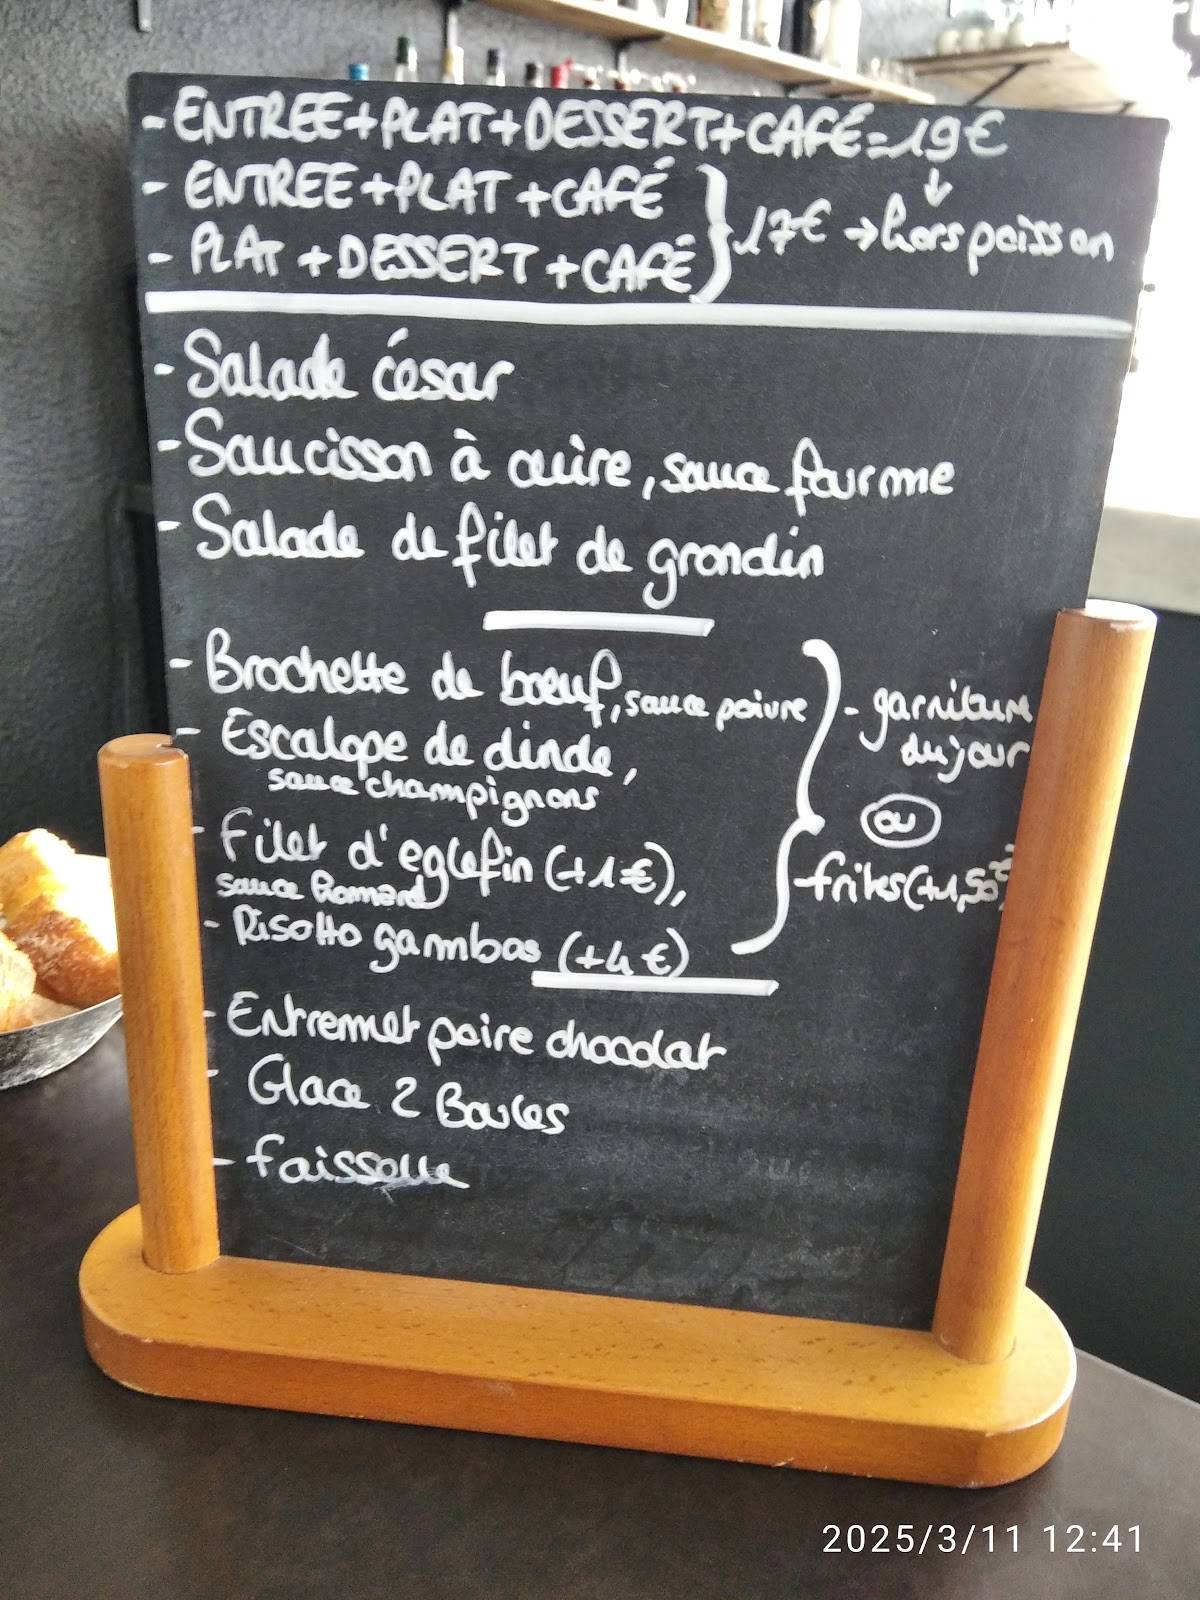 - ENTREE+PLAT+DESSERT+CAFÉ=19€
- ENTREE+PLAT+CAFÉ
- PLAT+DESSERT+CAFÉ
17€ → hors poisson
- Salade césar
- Saucisson à cuire, sauce fourme
- Salade de filet de grondin
- Brochette de bœuf, sauce poivre
- Escalope de dinde,
sauce champignons
- Filet d'eglefin (+1€),
sauce homard
- Risotto gambas (+4€)
- garniture
du jour
ou
frites (+1,50€
- Entremet poire chocolat
- Glace 2 Boules
- faisselle
2025/3/11 12:41